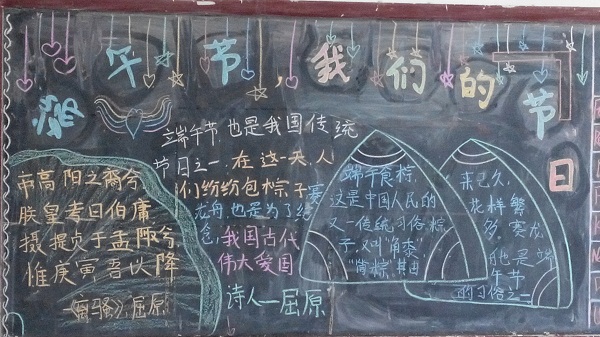 端午节，我们的节日
帝高阳之裔兮
朕皇考曰伯庸
摄提贞于孟陬兮
惟庚寅吾以降
《离骚》屈原
端午节,也是我国传统
节日之一.在这一天,人
们纷纷包粽子赛
龙舟也是为了纪
念,我国古代
伟大爱国
诗人—屈原
端午食粽.
这是中国人民的
又一传统习俗粽
子,叫"角黍",
"筒粽".其由
来已久,
花样繁
多.赛龙
也是端
午节
的习俗之一